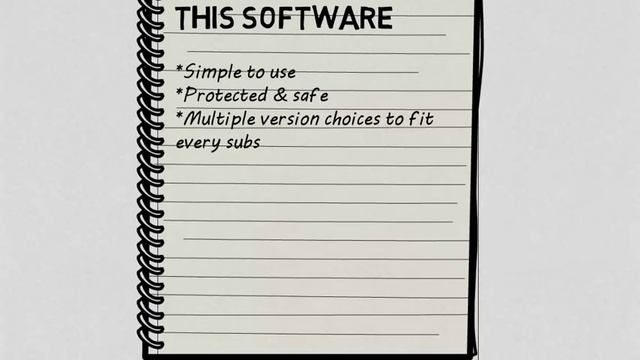 THIS SOFTWARE
*Simple to use
*Protected & safe
*Multiple version choices to fit
every subs